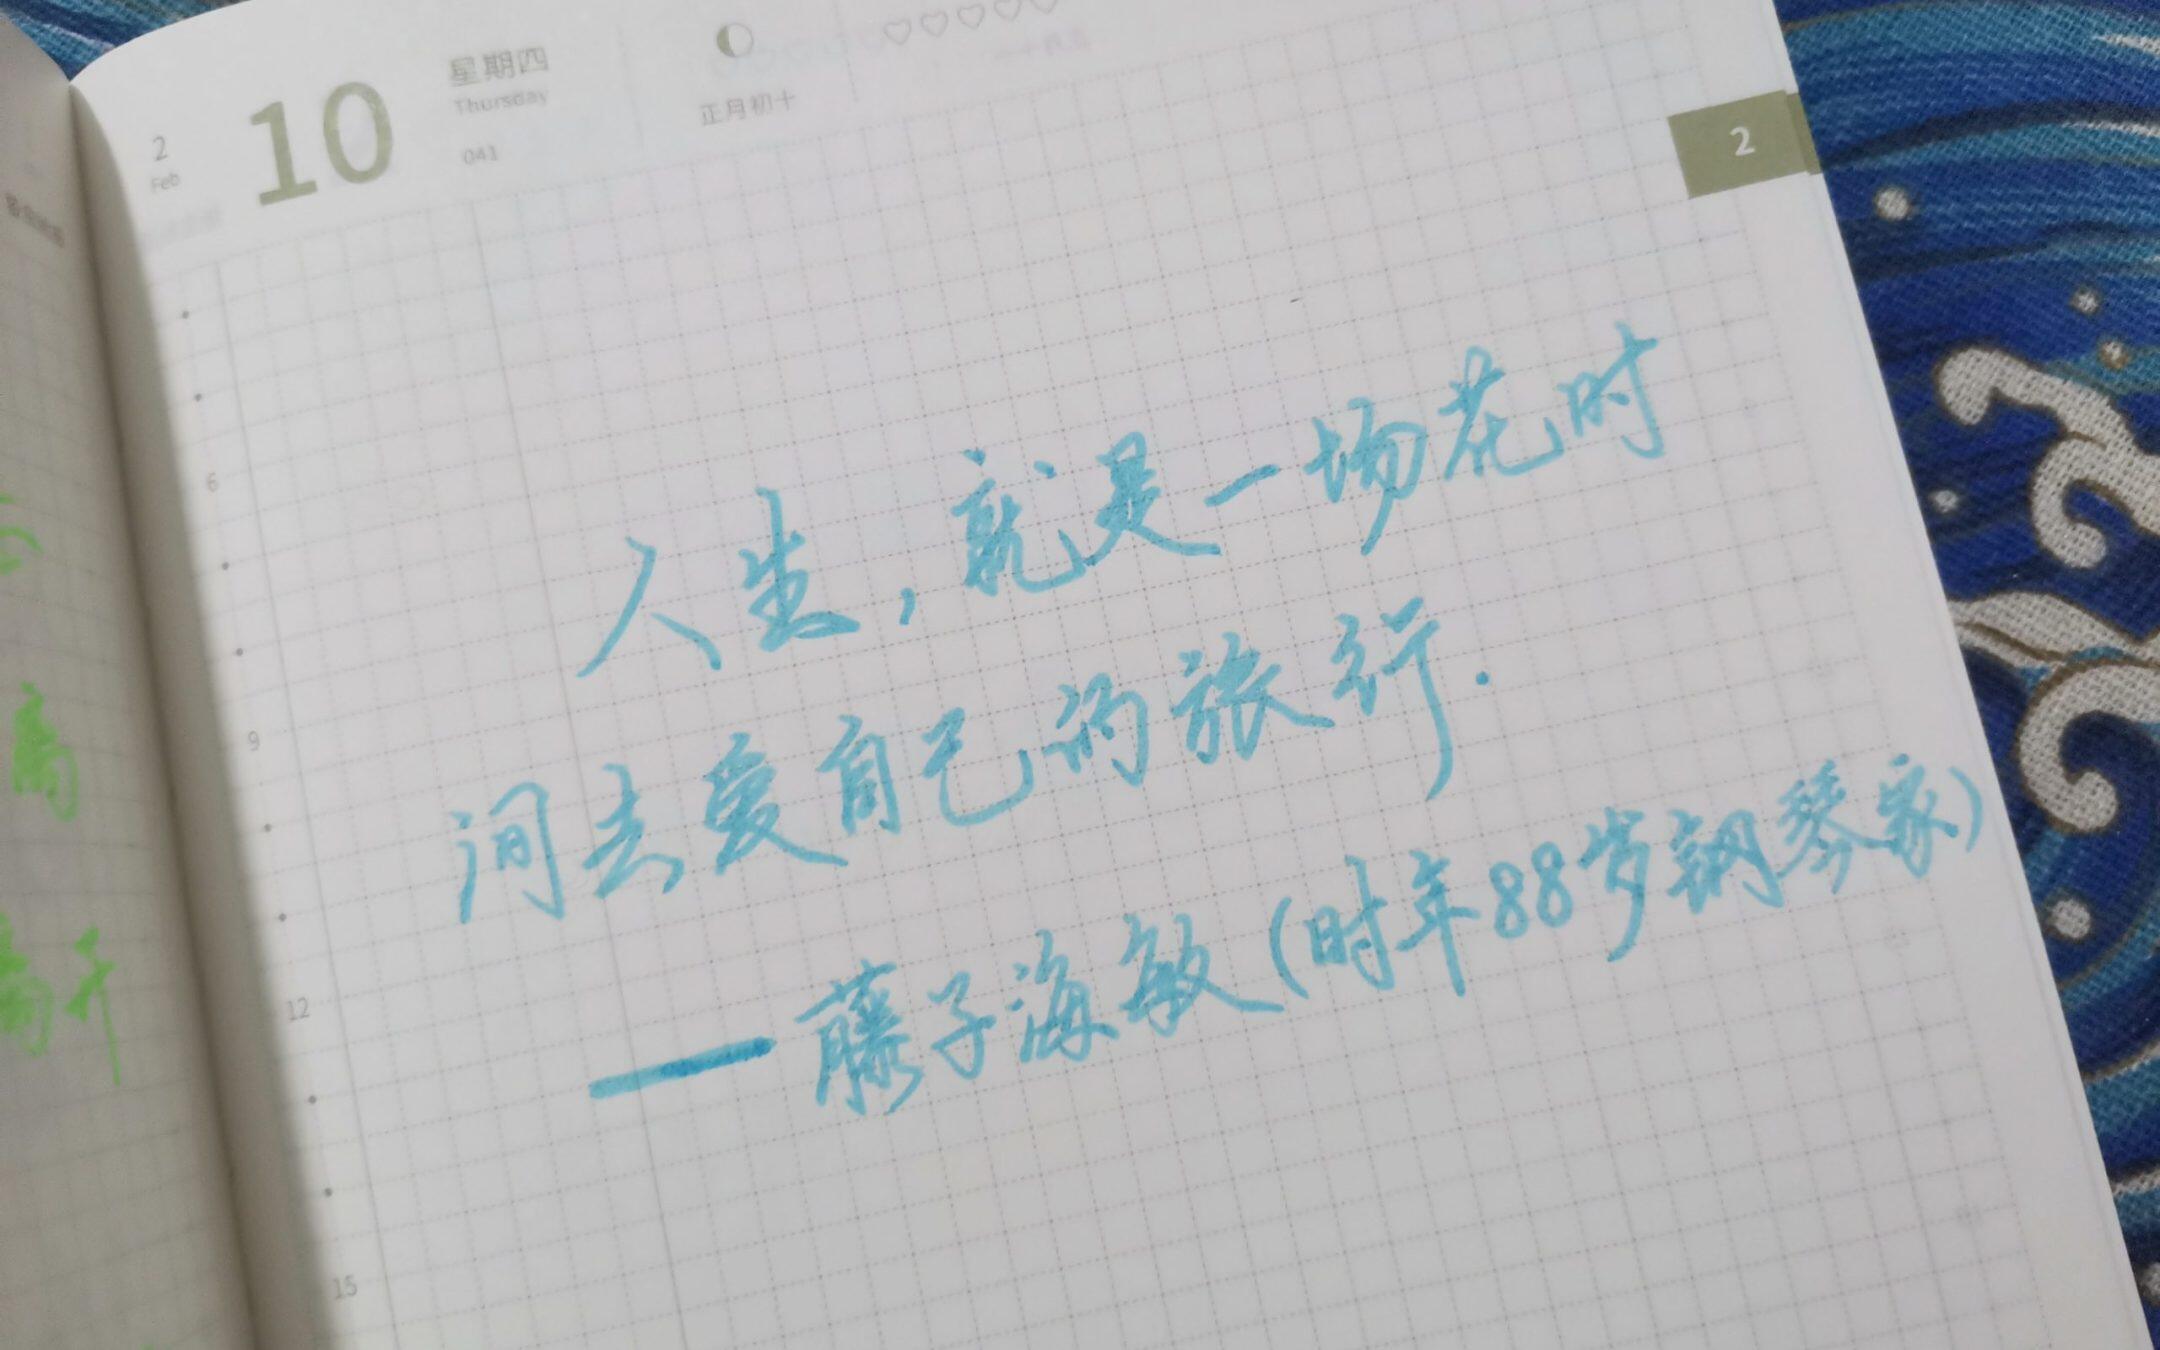 2
Feb
10
星期四
Thursday
041
正月初十
2
6
9
12
15
人生，就是一场花时
间去爱自己的旅行.
——藤子海敏(时年88岁钢琴家)
高
高升